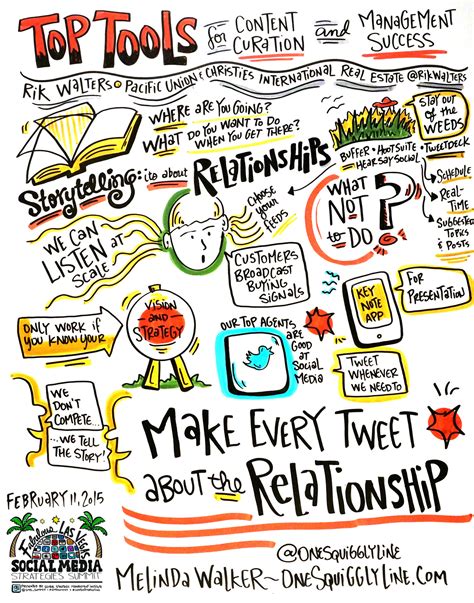 TOP TOOLS for CONTENT CURATION and MANAGEMENT SUCCESS
RIK WALTERS • PACIFIC UNION & CHRISTIES INTERNATIONAL REAL ESTATE @RIKWALTERS
WHERE ARE YOU GOING?
WHAT DO YOU WANT TO DO
WHEN YOU GET THERE?
STAY OUT
OF THE
WEEDS
Storytelling: its about RELATIONSHIPS
BUFFER • HOOTSUITE • TWEETDECK
HEARSAY SOCIAL
SCHEDULE
REAL-
TIME
SUGGESTED
TOPICS
& POSTS
WE CAN
LISTEN AT
SCALE
CHOOSE
YOUR
FEEDS
WHAT
NOT
to DO?
CUSTOMERS
BROADCAST
BUYING
SIGNALS
KEY
NOTE
APP
FOR
PRESENTATION
ONLY WORK if
YOU KNOW YOUR
VISION
AND
STRATEGY
OUR TOP AGENTS
ARE
GOOD
at
SOCIAL
MEDIA
TWEET
WHENEVER
WE NEED TO
WE
DON'T
COMPETE...
...WE TELL
THE STORY!
MAKE EVERY TWEET
ABOUT the RELATIONSHIP
FEBRUARY 11, 2015
Fabulous LAS VEGAS
SOCIAL MEDIA
STRATEGIES SUMMIT
@ONESQUIGGLYLINE
MELINDA WALKER~ONESQUIGGLYLINE.COM